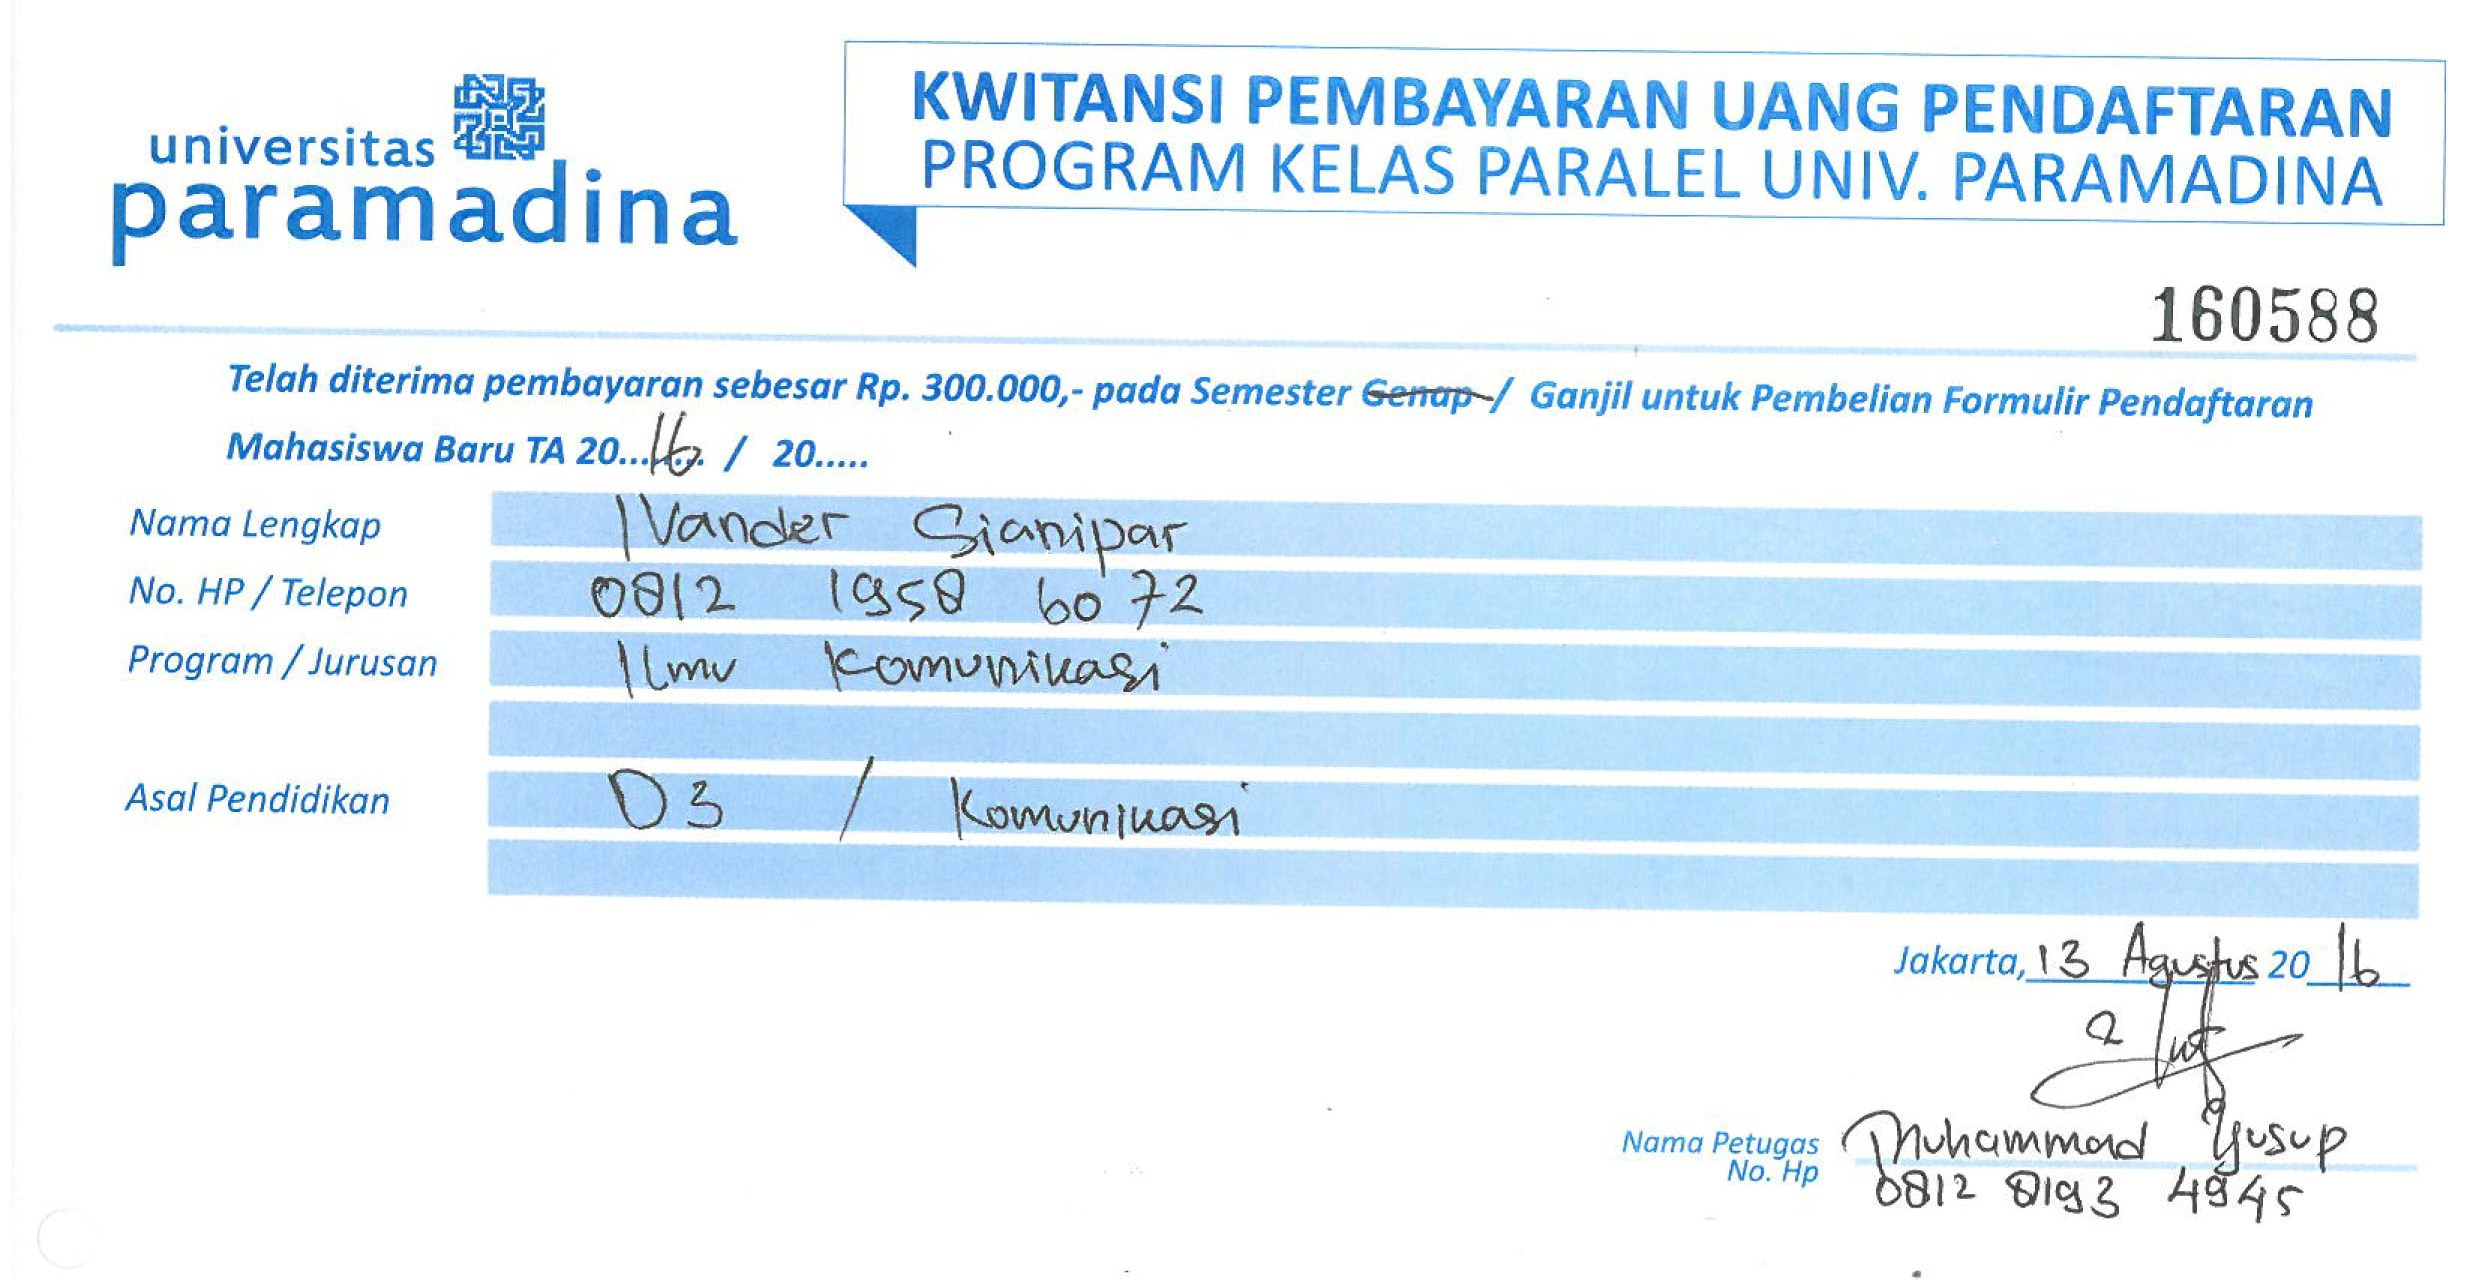 universitas
paramadina
KWITANSI PEMBAYARAN UANG PENDAFTARAN
PROGRAM KELAS PARALEL UNIV. PARAMADINA
160588
Telah diterima pembayaran sebesar Rp. 300.000,- pada Semester Genap / Ganjil untuk Pembelian Formulir Pendaftaran
Mahasiswa Baru TA 20...16... / 20.....
Nama Lengkap IVander Sianipar
No. HP / Telepon 0812 1958 6072
Program / Jurusan Ilmu Komunikasi
Asal Pendidikan D3 / Komunikasi
Jakarta, 13 Agustus 20 16
Nama Petugas Muhammad Yusup
No. Hp 0812 8193 4945